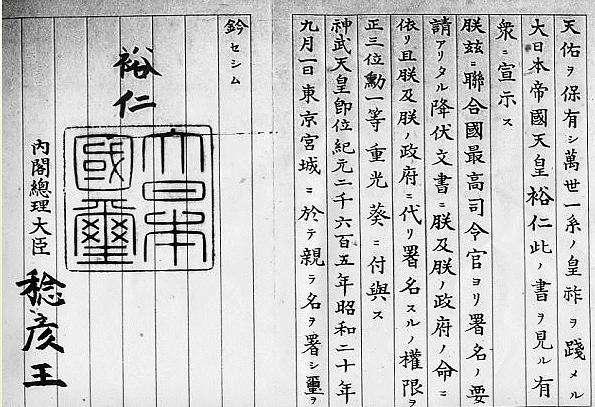 天佑ヲ保有シ萬世一系ノ皇祚ヲ踐メル
大日本帝國天皇裕仁此ノ書ヲ見ル有
衆ニ宣示ス
朕玆ニ聯合國最高司令官ヨリ署名ノ要
請アリタル降伏文書ニ朕及朕ノ政府ノ命ニ
依リ且朕及朕ノ政府ニ代リ署名スルノ權限ヲ
正三位勳一等重光葵ニ付與ス
神武天皇卽位紀元二千六百五年昭和二十年
九月一日東京宮城ニ於テ親ラ名ヲ署シ璽ヲ
鈐セシム
裕仁
大日本
國璽
內閣總理大臣稔彥王